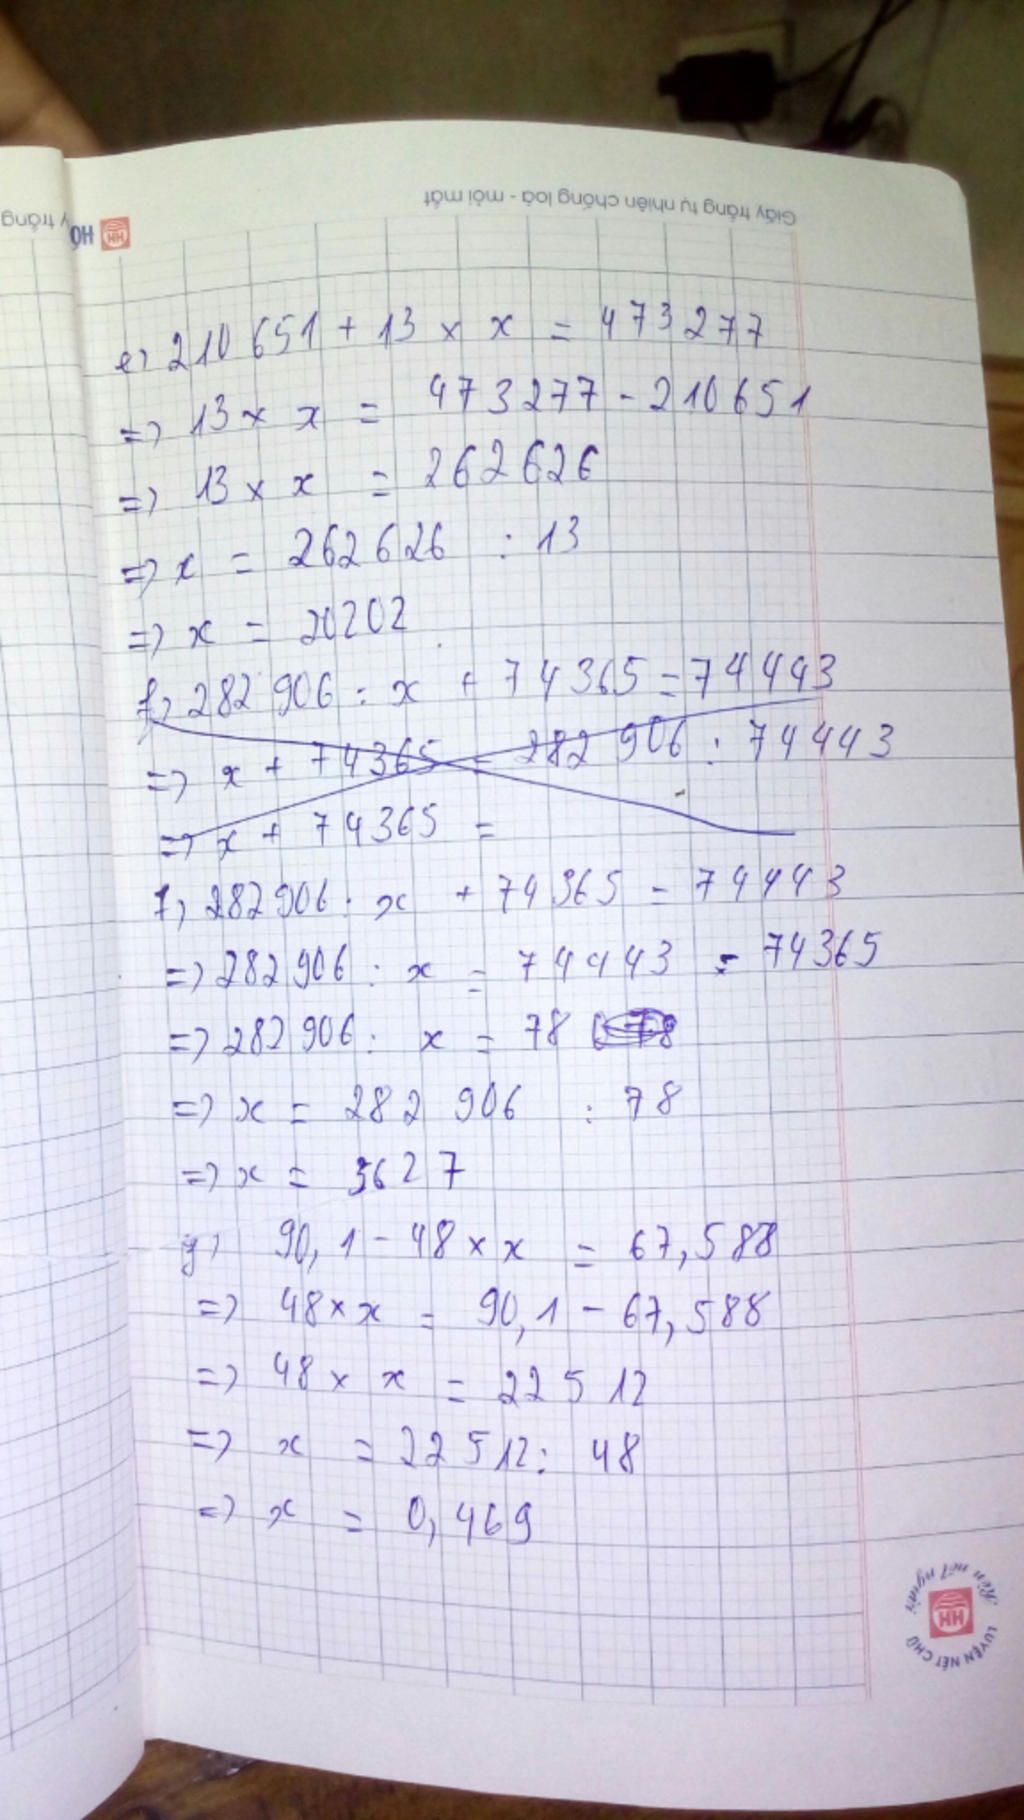 Giấy trắng tự nhiên chống loá - mỏi mắt
HH
e) 210 651 + 13 × x = 473 277
=> 13 × x = 473 277 - 210 651
=> 13 × x = 262 626
=> x = 262 626 : 13
=> x = 20202
f) 282 906 : x + 74 365 = 74 443
=> x + 74365 = 282 906 : 74443
=> x + 74365 =
f) 282906 : x + 74 365 = 74443
=> 282 906 : x = 74443 - 74365
=> 282 906 : x = 78
=> x = 282 906 : 78
=> x = 3627
g) 90,1 - 48 × x = 67,588
=> 48 × x = 90,1 - 67,588
=> 48 × x = 22 512
=> x = 22 512 : 48
=> x = 0,469
LUYỆN NÉT CHỮ
Rèn nết người
HH